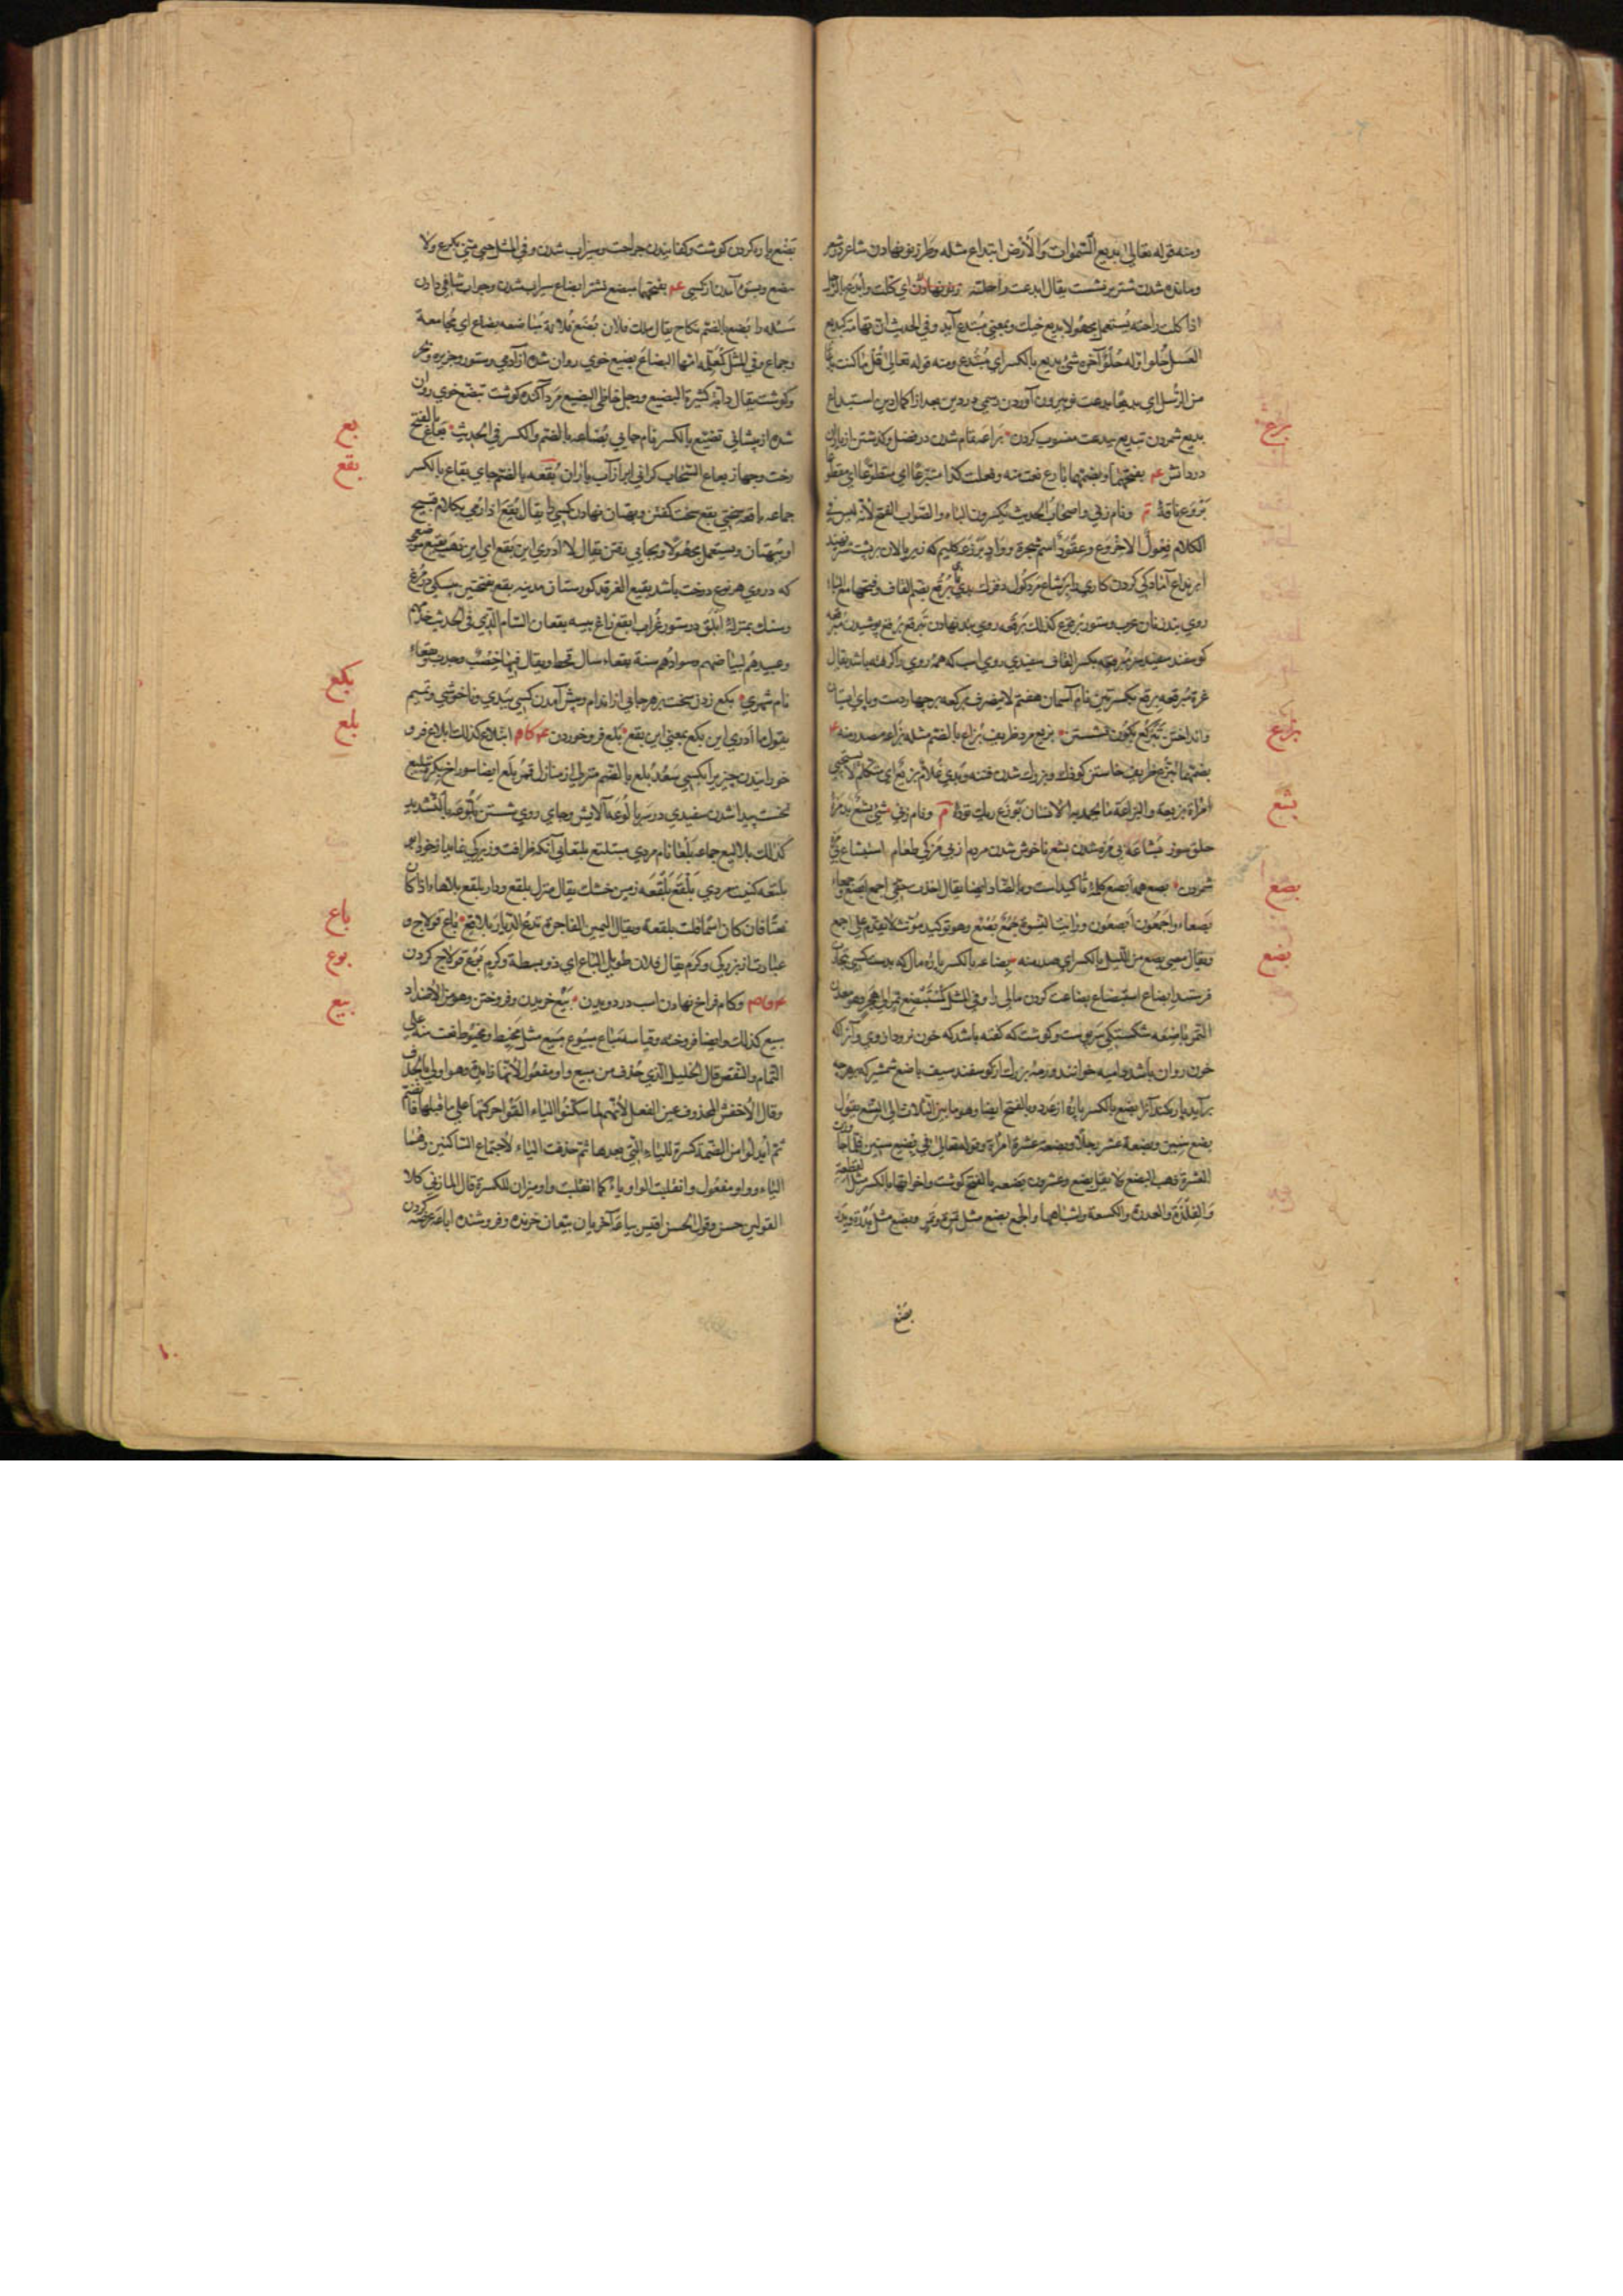 ومنه قوله تعالى بديع السموات والأرض ابتداع مثله وطرز نو نهادن شاعر در شعر
ومانده شدن شتر بر نشست يقال ابدعت راحلته نو نهادن اي كلت وابدع بالرجل
اذا كلت راحلته يستعمل مجهولا بديع خيك وبمعنى مبتدع آيد وفي الحديث ان تهامة كبديع
العسل حلو اوله حلو آخره شئ بدع بالكسر اي مبتدع ومنه قوله تعالى قل ما كنت بدعا
من الرسل اي بديعا بدعت نو بيرون آوردن رسمي در دين بعد از اكمال دين استبداع
بديع شمردن تبديع ببدعت منسوب كردن براعه تمام شدن در فضل وكذشتن از ياران
در دانش عم بفتحتهما وبضمهما بارع نعت منه وفعلت كذا متبرعا اي متطوعا
بروع ناقة م ونام زني واصحاب الحديث يكسرون الباء والصواب الفتح لأنه ليس في
الكلام فعول الا خروع وعتود اسم شجرة وواد برذعه كليم كه زير پالان بر پشت شتر نهند
ابرنذاع آمادكي كردن كاري را برشاع مرد كول برقع بضم القاف وفتحها مع الباء
روي بند زنان عرب وستور برقوع كذلك برقعه روي بند نهادن تبرقع برقع پوشيدن
كوسفند سفيد سر مبرقعه بكسر القاف سفيدي روي اسب كه همه روي را كرفته باشد يقال
غرة مبرقعه برقع بكسرتين نام آسمان هفتم لا ينصرف بركعه بر چهار دست وپاي ايستادن
وانداختن تبركع بكون نشستن بزيع مرد ظريف بزاع بالضم مثله بزاعه مصدر منه
بضمهما تبزع ظريف خاستن كودك وبزرك شدن فتنه وبدي غلام بزيع اي متكلم لا يستحيي
امراة بزيعة والبزاعة مما يحمد به الانسان بوزع ريك توده م ونام زني شئ بشع بد مزه
حلق سوز بشاعة بي مزه شدن بشع ناخوش شدن مردم از بي مزكي طعام استبشاع بي مزه
شمردن بصع هم ابصع كلمه تاكيد است وبالضاد ايضا يقال اخذت حقي اجمع ابصع وجمعاء
بصعاء واجمعون ابصعون ورايت النسوة جمع بصع وهو توكيد مؤنث لا يقدم على اجمع
ويقال مضى بصع من الليل بالكسر اي صدر منه بضاعه بالكسر پاره مال كه بدست كسي بتجارت
فرستند ابضاع استبضاع بضاعت كردن مالي را وفي المثل كمستبضع تمر الى هجر وهو معدن
التمر باضعه شكستكي سر پوست وكوشت كه كفته باشد كه خون نرود از وي وآنرا كه
خون روان باشد داميه خوانند ورمه بزرك از كوسفند سيف باضع شمشير كه بر هر چه
بر آيد پاره كند آنرا بضع بالكسر پاره از عدد وبالفتح ايضا وهو ما بين الثلاث الى التسع يقول
بضع سنين وبضعة عشر رجلا وبضعة عشرة امراة وقوله تعالى في بضع سنين فاذا جاوزت
العشرة ذهب البضع لا يقال بضع وعشرون بضعه بالفتح كوشت واخواتها بالكسر مثل القطعة
والفلذة والقدرة والكسفة واشباهها والجمع بضع مثل تمرة وتمر وبضع مثل بدرة وبدر
بضع
بزع
بزيع
بشع
بصع
بضع
بضع پاره كردن كوشت وكفانيدن جراحت وسيراب شدن وفي المثل حتى متى تكرع ولا
تبضع وبستوه آمدن از كسي عم بفتحهما مبضع نشتر ابضاع سيراب شدن وجواب شافي دادن
مسئله را بضع بالضم نكاح يقال ملك فلان بضع فلانة مباضعه بضاع اي مجامعة
وجماع وفي المثل كمعلمة امها البضاع بضيع خوي روان شده از آدمي وستور وجزيره وبحر
وكوشت يقال دابة كثيرة البضيع ورجل خاظي البضيع مرد آكنده كوشت تبضع خوي روان
شدن از پيشاني تبضع بالكسر نام جايي بضاعه بالضم والكسر في الحديث بعاع بالفتح
رخت وجهاز بعاع السحاب كراني ابر از آب باران بقعه بالضم جاي بقاع بالكسر
جماعه باقعه سختي بقع سخت كفتن وبهتان نهادن كسي را يقال بقع اذا رمي بكلام قبيح
او بهتان ويستعمل مجهولا وبجايي رفتن يقال لا ادري اين بقع اي اين ذهب بقيع موضعي
كه دروي هر نوع درخت باشد بقيع الغرقد كورستان مدينه بقع بفتحتين پيسكي در مرغ
وسك بمنزله ابلق در ستور غراب ابقع زاغ پيسه بقعان الشام الذي في الحديث خدام
وعبيدهم لبياضهم وسوادهم سنة بقعاء سال قحط ويقال فيها خصب وجدب بقعاء
نام شهري بكع زدن سخت بر هر جاي از اندام وپيش آمدن كسي ببدي وناخوشي وتميم
يقول ما ادري اين بكع بمعنى اين بقع بلع فرو خوردن عم كام ابتلاع كذلك ابلاع فرو
خورانيدن چيزي را بكسي سعد بلع بالضم منزلي از منازل قمر بلع ايضا سوراخ بكره تبليع
نخست پيدا شدن سفيدي در سر بالوعه آلايش وجاي روي شستن بلوعه بالتشديد
كذلك بلاليع جماعه بلعاء نام مردي متبلتع بلتعاني آنكه ظرافت وزيركي نمايد از خود ابو
بلتعه كنيت مردي بلقع بلقعه زمين خشك يقال منزل بلقع ودار بلقع بلا هاء اذا كان
نعتا فان كان اسما قلت بلقعة ويقال اليمين الفاجرة تدع الديار بلاقع باع قولاج و
عبارت از بزركي وكرم يقال فلان طويل الباع اي ذو بسطة وكرم بوع قولاج كردن
عم وكام فراخ نهادن اسب در دويدن بيع خريدن وفروختن وهو من الاضداد
مبيع كذلك وايضا فروخته وقياسه مبيوع مثل مخيط ومخيوط نعت منه على
التمام والنقص قال الخليل الذي حذف من مبيع واو مفعول لأنها زائدة وهو اولى بالحذف
وقال الأخفش المحذوف عين الفعل لأنهم لما سكنوا الياء القوا حركتها على ما قبلها فانضم
ثم ابدلوا من الضمة كسرة للياء التي بعدها ثم حذفت الياء لاجتماع الساكنين وهما
الياء وواو مفعول وانقلبت الواو ياء كما انقلبت واو ميزان للكسرة قال المازني كلا
القولين حسن وقول الاخفش اقيس بياعه آخريان بيعان خرنده وفروشنده اباعه عرضه كردن
بع
بقع
بكع
بلع
باع
بوع
بيع